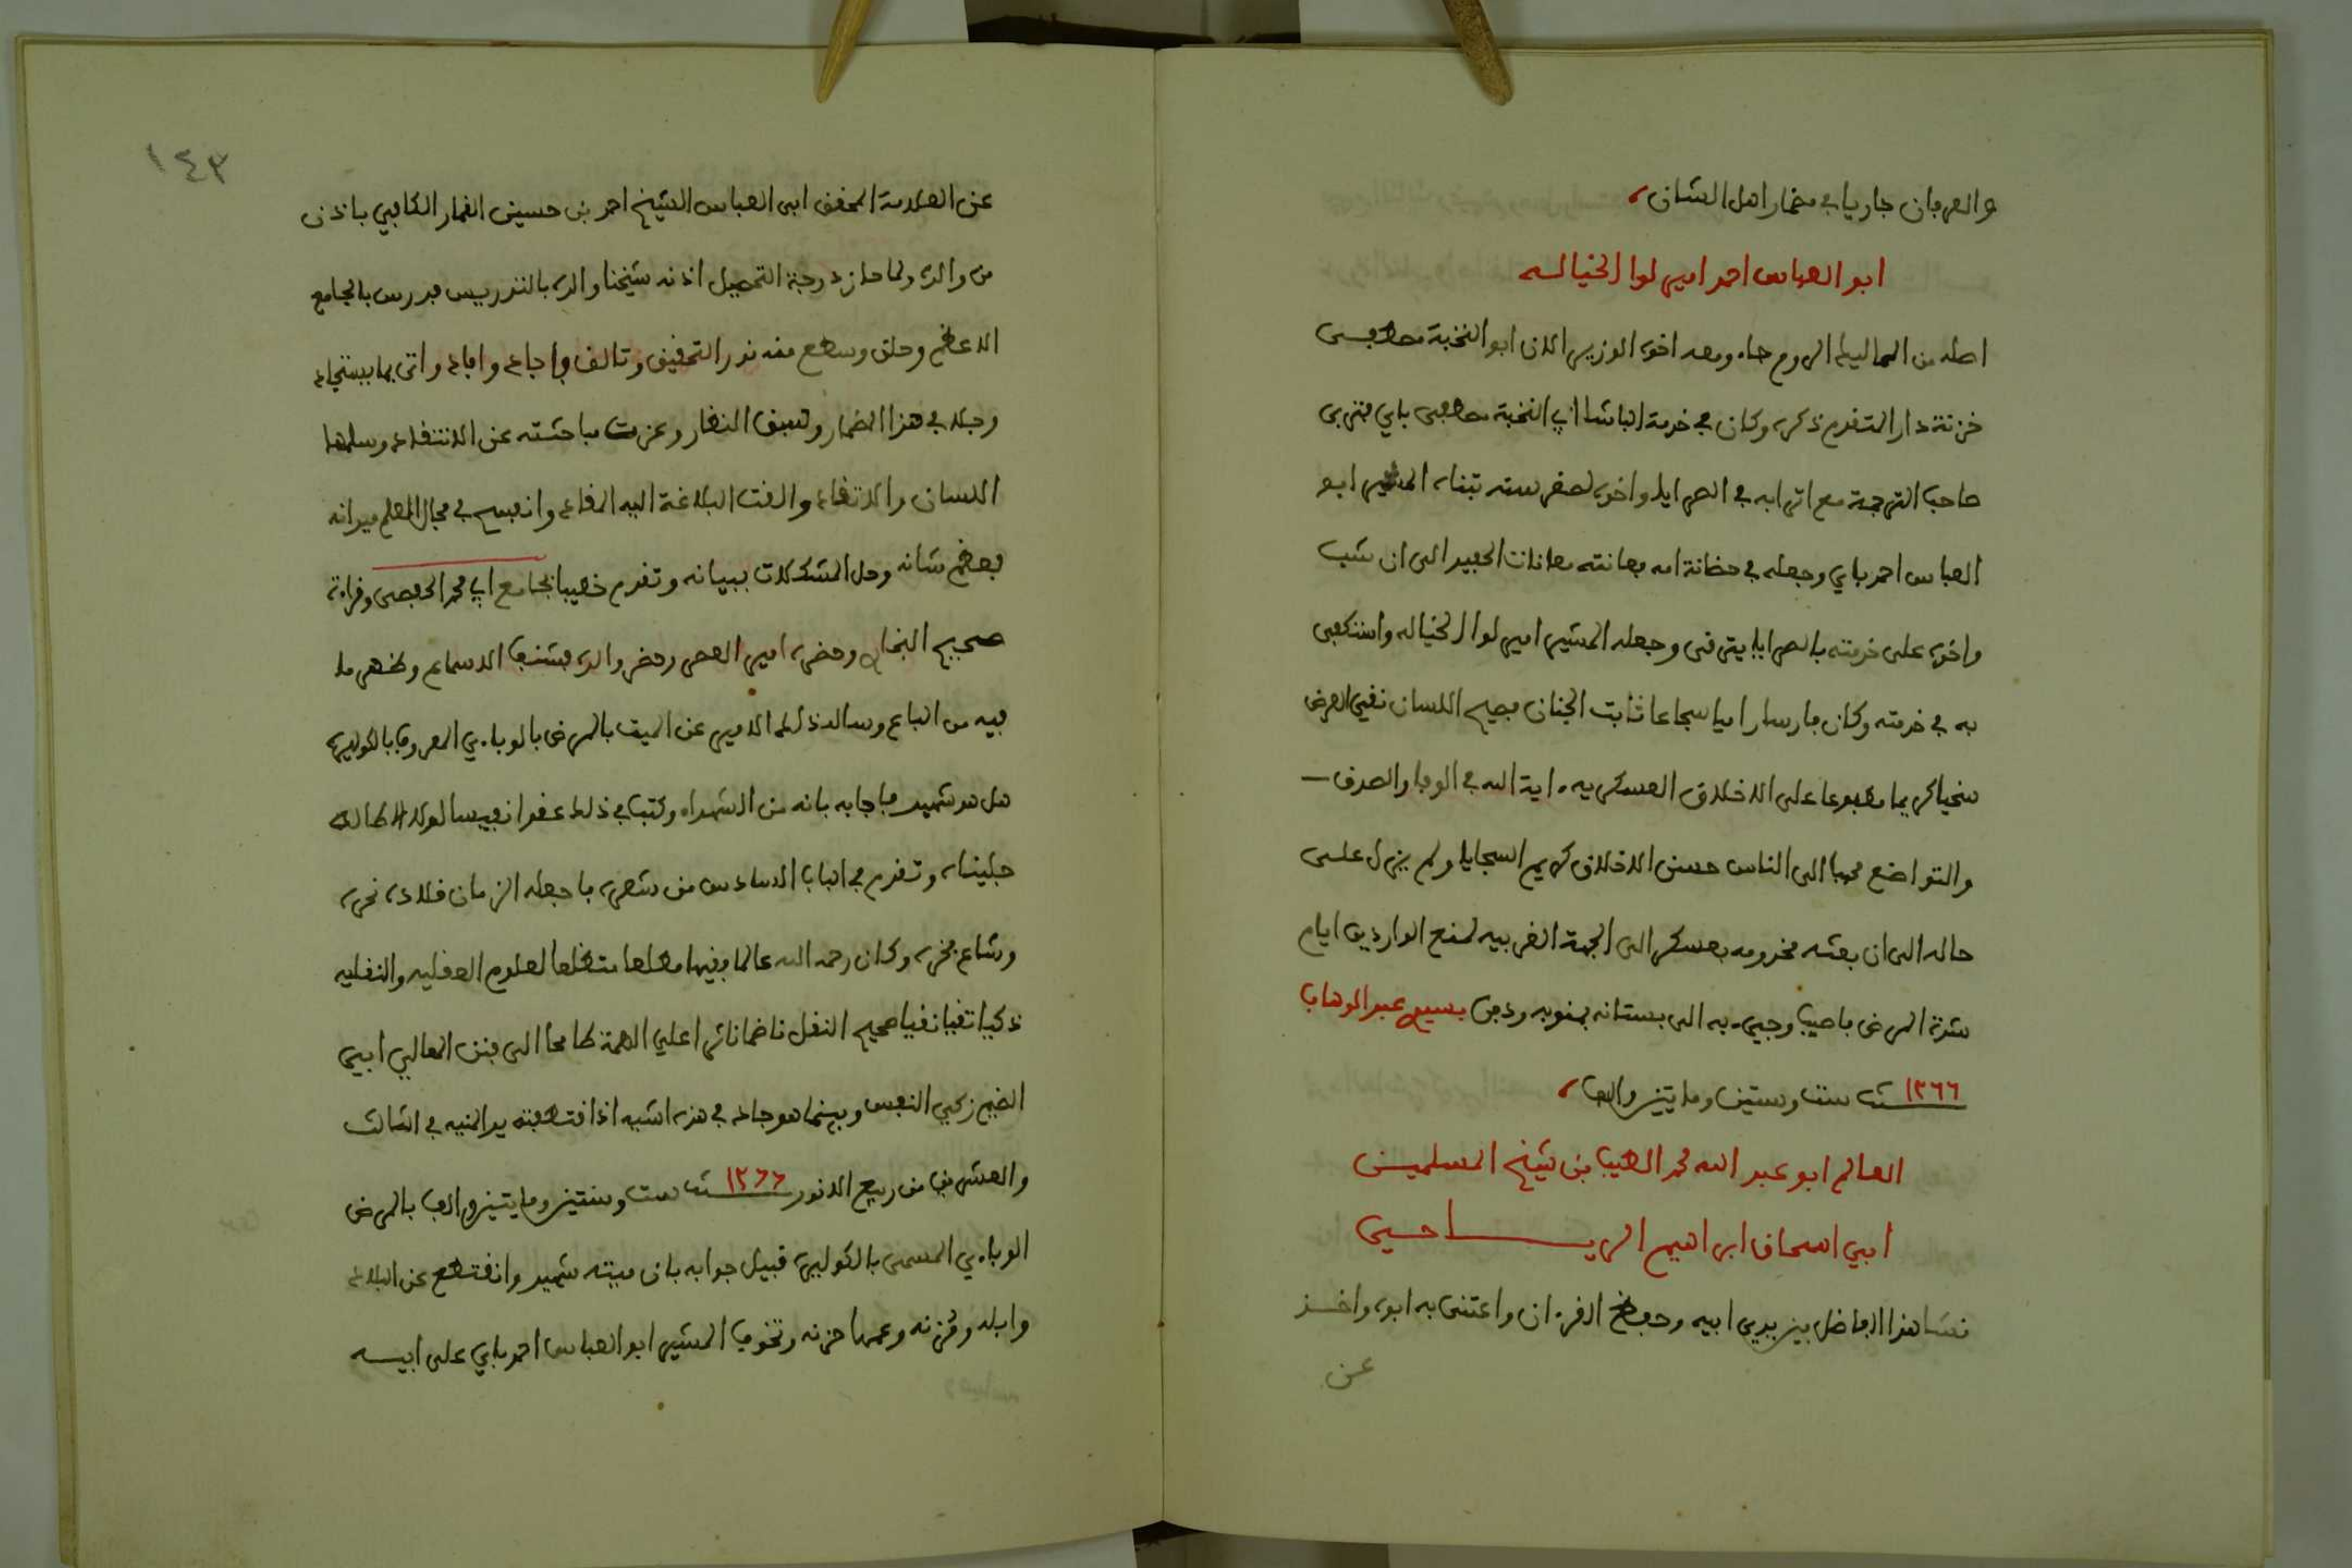 والعرفان جاريا في مضمار اهل الشان
ابو العباس احمد امير لوا الخيالسه
اصله من المماليك الروم جاء ومعه اخوه الوزير الان ابو النخبة مصطفى
خزنة دار المتقدم ذكره وكان في خدمة الباشا ابي النخبة مصطفى باي فتربى
صاحب الترجمة مع اترابه في الصرايا واخوه لصغر سنه تبناه المشير ابو
العباس احمد باي وجعله في حضانة امه فعانته معانات الحفيد الى ان شب
واخوه على خدمته بالصرايا يترقى وجعله المشير امير لوا الخياله واستكفى
به في خدمته وكان فارسا راميا شجاعا ثابت الجنان فصيح اللسان نقي العرض
سخيا كريما مطبوعا على الاخلاق العسكريه اية الله في الوفا والصدق
والتواضع محببا الى الناس حسن الاخلاق كريم السجايا ولم يزل على
حاله الى ان بعثه مخدومه بعسكر الى الجهة الغربيه لمنع الواردين ايام
شدة المرض فاصيب وجيء به الى بستانه بمنوبه ودفن بسيدي عبد الوهاب
سنة ١٢٦٦ ست وستين ومايتين والف
العالم ابو عبد الله محمد الطيب بن شيخ المسلمين
ابي اسحاق ابراهيم الرياحي
نشا هذا الفاضل بين يدي ابيه وحفظ القرءان واعتنى به ابوه واخذ
عن
١٤٣
عن العلامة المحقق ابي العباس الشيخ احمد بن حسين الغمار الكافي باذن
من والده ولما حاز درجة التحصيل اذنه شيخنا والده بالتدريس فدرس بالجامع
الاعظم وحلق وسطع منه نور التحقيق وتالق واجاد وافاد واتى بما يستجاد
وجلا في هذا المضمار وسبق النظار وعزت مباحثته عن الانتقاد وسلمها
اللسان والاتقاد والقت البلاغة اليه المقاد وانفسح في مجال العلم ميدانه
فعظم شانه وحل المشكلات ببيانه وتقدم خطيبا بجامع ابي محمد الحفصي وقراءة
صحيح البخاري وحضره امير العصر وحضر والده فشنف الاسماع وظهر ما
فيه من الباع وساله ذلك الامير عن الميت بالمرض بالوباءي المعروف بالكوليره
هل هو شهيد فاجابه بانه من الشهداء وكتب في ذلك عقدا نفيسا لولا الاطاله
جلبناه وتقدم في الباب السادس من شعره ما جعله الزمان قلادة نحره
وشاع فخره وكان رحمه الله عالما فقيها مطلعا متضلعا لعلوم العقليه والنقليه
ذكيا تقيا نقيا صحيح النقل ناظما ناثرا علي الهمة طامحا الى قنن المعالي ابي
الضيم زكي النفس وبينما هو جاد في هذه الشيه اذ اقتطفته يد المنيه في الثالث
والعشرين من ربيع الانور سنة ١٢٦٦ ست وستين ومايتين والف بالمرض
الوباءي المسمى بالكوليره قبيل جوابه بان ميته شهيد وانقطع عن البلاد
وابله وقزنه وعمها حزنه وتخوف المشير ابو العباس احمد باي على ابيه